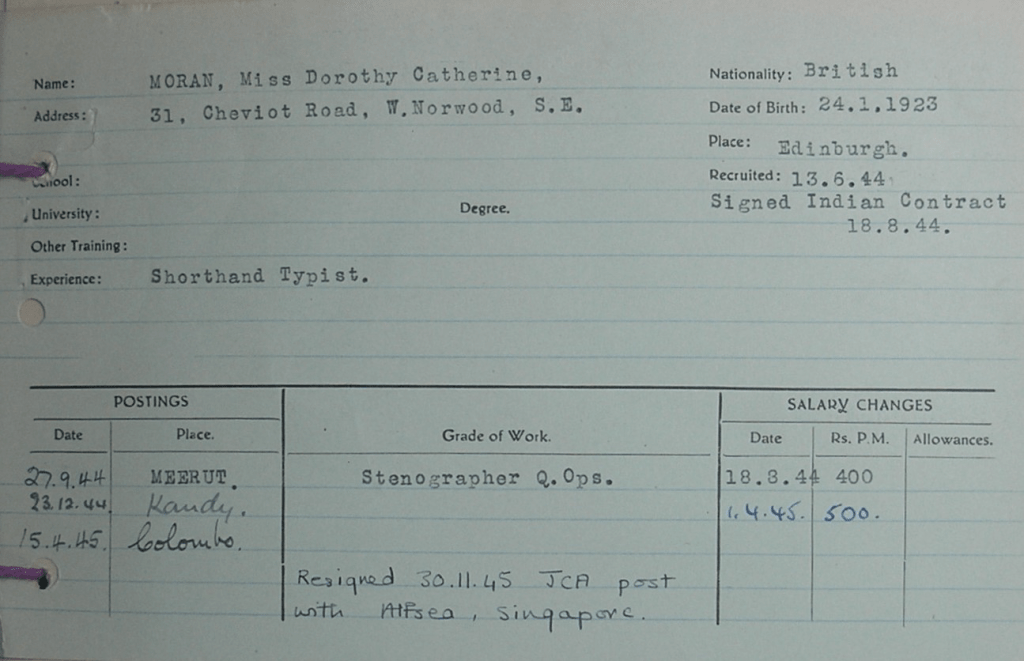 Name: MORAN, Miss Dorothy Catherine,
Nationality: British
Address: 31, Cheviot Road, W.Norwood, S.E.
Date of Birth: 24.1.1923
Place: Edinburgh.
School:
Recruited: 13.6.44
University: Degree.
Signed Indian Contract
18.8.44.
Other Training:
Experience: Shorthand Typist.
POSTINGS SALARY CHANGES
Date Place. Grade of Work. Date Rs. P.M. Allowances.
27.9.44 MEERUT. Stenographer Q.Ops. 18.8.44 400
23.12.44 Kandy. 1.4.45. 500.
15.4.45. Colombo.
Resigned 30.11.45 JCA post
with Alfsea, Singapore.